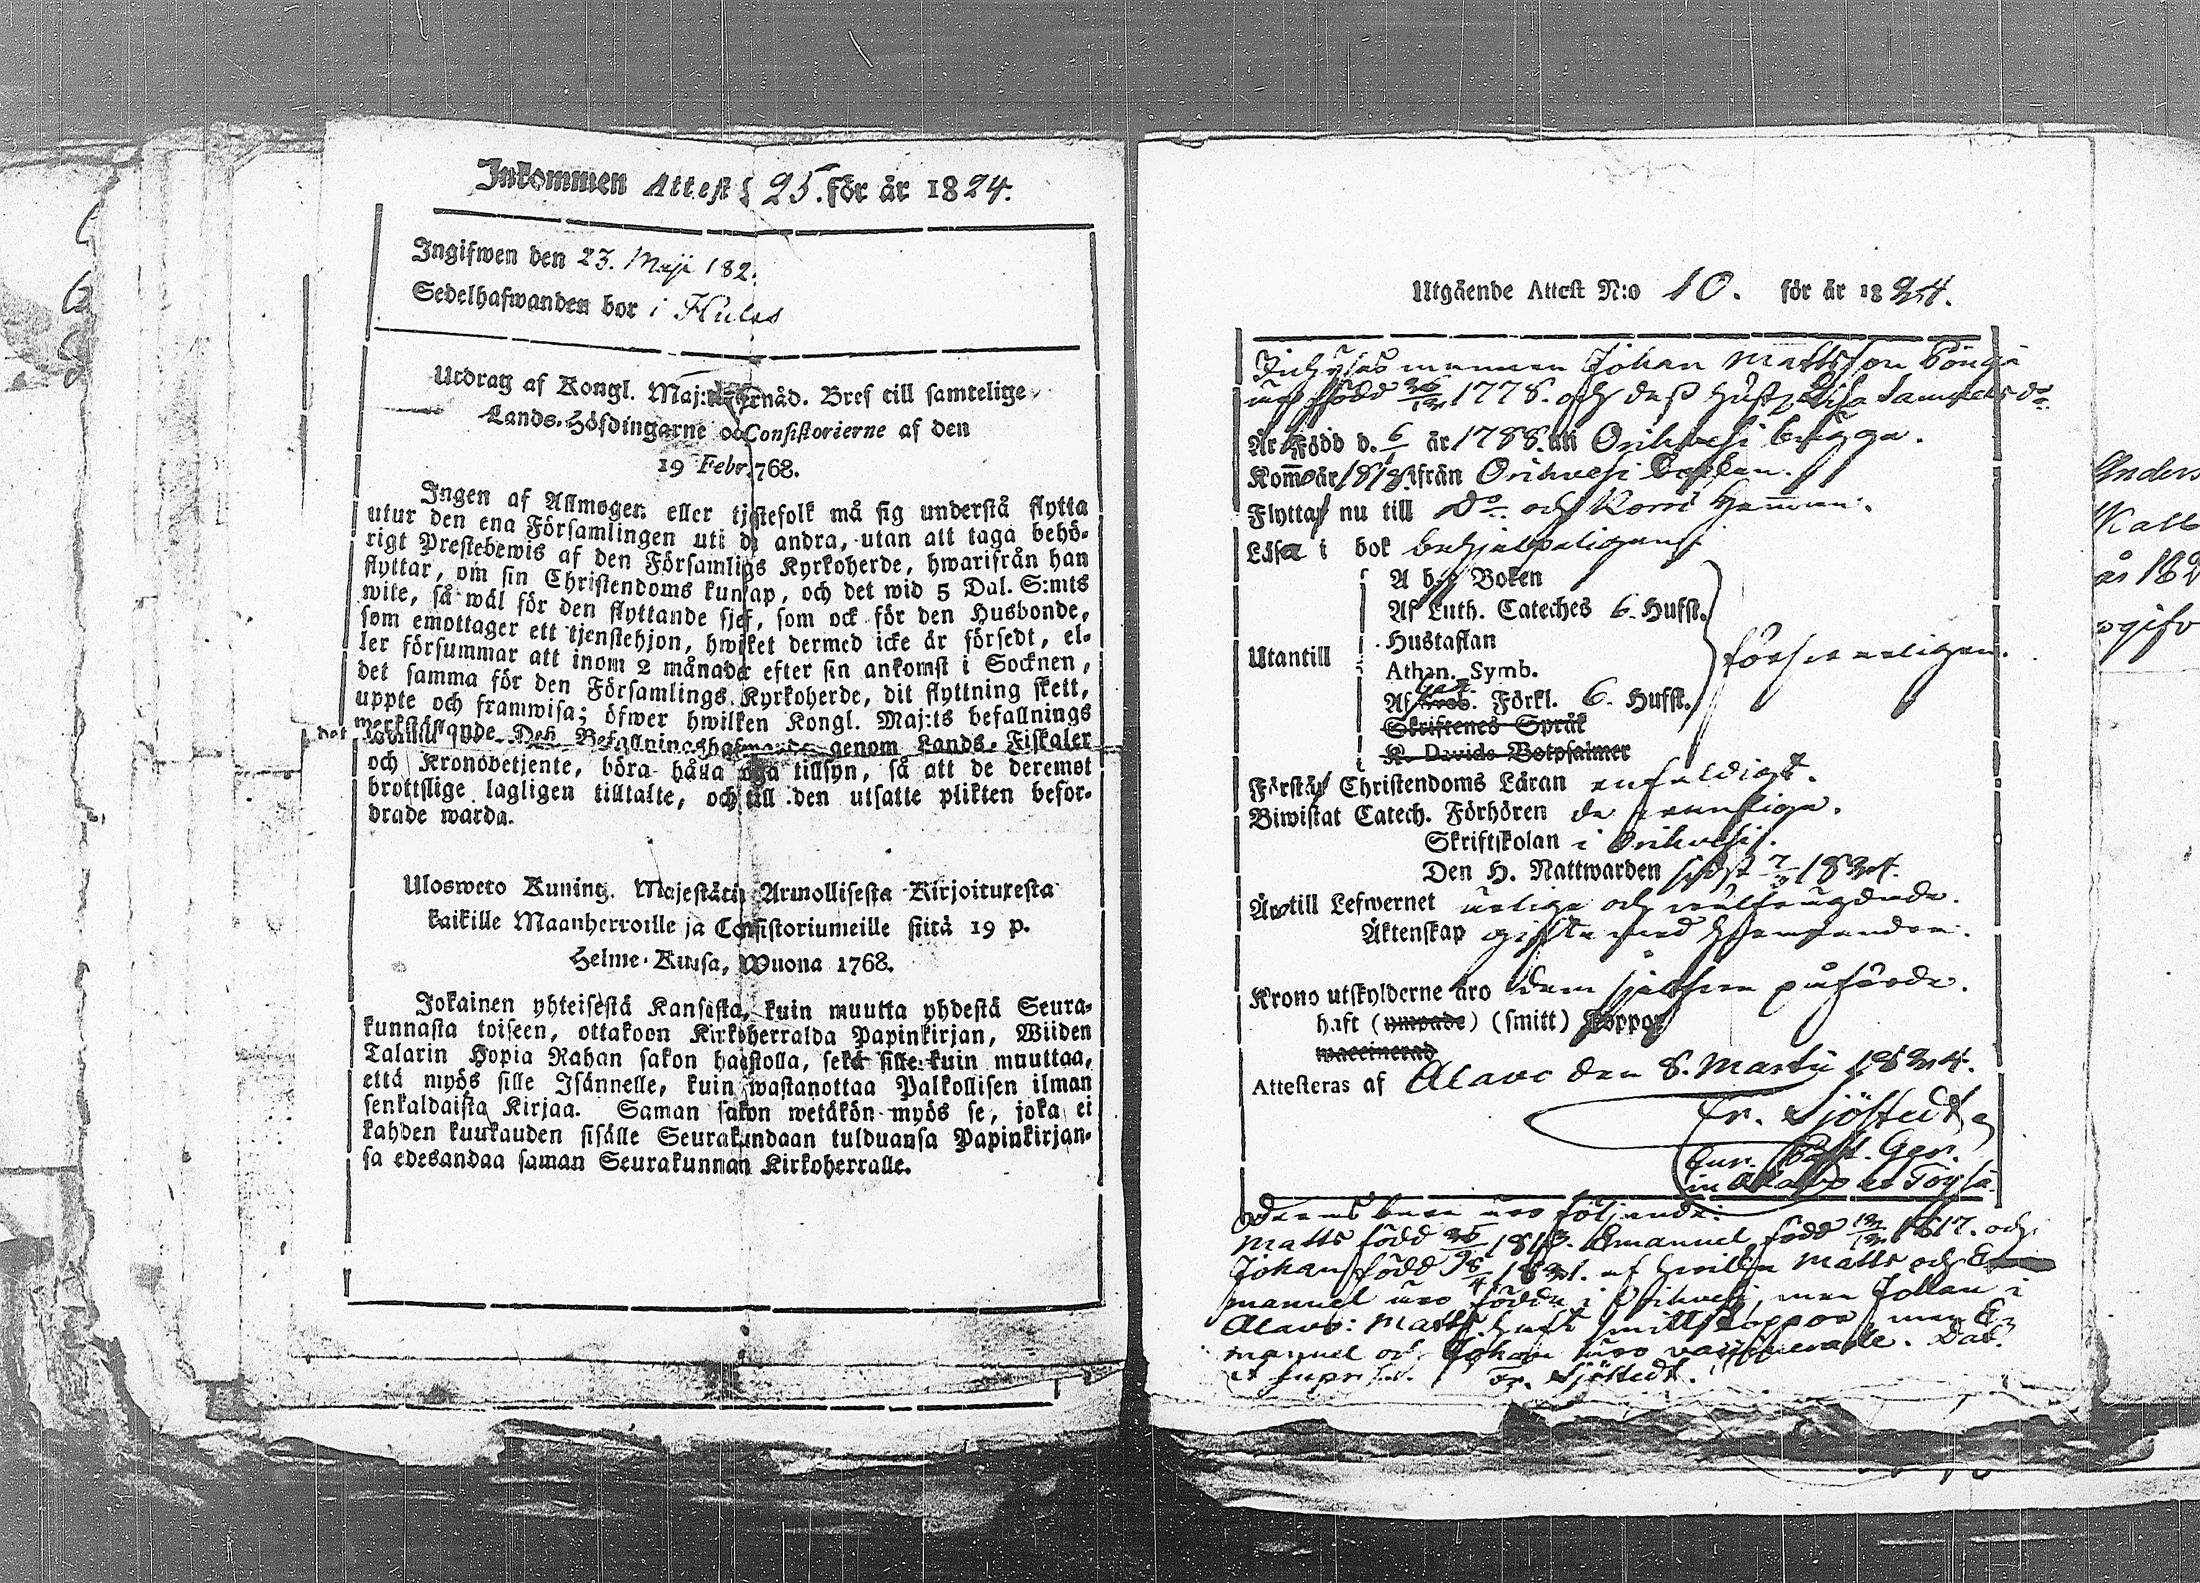 Inkommen Attest 25. för år 1824.
Ingifwen den 23. Maji 182.
Sedelhafwanden bor i
Utdrag af Kongl. Maj:ts Bref till samtelige
Lands-Höfdingarne Consistorierne af den
19 Febr. 768.
Ingen af Allmogen eller tjestefolk må sig understå flytta
utur den ena Församlingen uti de andra, utan att taga behö-
rigt Prestebewis af den Församligs Kyrkoherde, hwarifrån han
flyttar, om sin Christendoms kunsap, och det wid 5 Dal. S:mts
wite, så wäl för den flyttande sjef, som ock för den Husbonde,
som emottager ett tjenstehjon, hwilket dermed icke är försedt, el-
ler försummar att inom 2 månader efter sin ankomst i Socknen,
det samma för den Församlings Kyrkoherde, dit flyttning skett,
uppte och framwisa; öfwer hwilken Kongl. Maj:ts befallnings
werkställande Deß Befallningshafwande genom Lands-Fiskaler
och Kronobetjente, böra hålla noga tillsyn, så att de deremot
brottslige lagligen tilltalte, och till den utsatte plikten befor-
drade warda.
Ulosweto Kuning. Majestätin Armollisesta Kirjoituxesta
kaikille Maanherroille ja Consistoriumeille siitä 19 p.
Helme-Kuusa, Wuona 1768.
Jokainen yhteisestä Kansasta, kuin muutta yhdestä Seura-
kunnasta toiseen, ottakoon Kirkoherralda Papinkirjan, Wiiden
Talarin Hopia Rahan sakon haastolla, sekä sille kuin muuttaa,
että myös sille Isännelle, kuin wastanottaa Palkollisen ilman
senkaldaista Kirjaa. Saman sakon wetäkön myös se, joka ei
kahden kuukauden sisälle Seurakundaan tulduansa Papinkirjan-
sa edesandaa saman Seurakunnan Kirkoherralle.
Utgående Attest N:o 10. för år 1824.
Inhyses mannen Johan Mattsson
född 26/12 1778. och deß hust. Lisa Samuelsdr
Är Född d. 6/1 år 1788. uti Orihvesi begge.
Kommo år 1818 ifrån Orihvesi Socken.
Flytta nu till Do och Hemman.
Läsa i bok behjelpeligen
A b c Boken
Af Luth. Cateches 6. Hufst.
Hustaflan
Utantill
Athan. Symb.
Af Förkl. 6. Hufst.
försvarligen.
Skriftenes Språk
K. Davids Botpsalmer
Förstå Christendoms Läran enfaldigt.
Biwistat Catech. Förhören de vanliga.
Skriftskolan i Orihvesi.
Den H. Nattwarden sidst 7/3 1824.
Äro till Lefwernet ärliga och välfrägdade.
Äktenskap gifte med hvarandra.
Krono utskylderne äro dem sjelfva påförde.
haft (ympade) (smitt) koppor
waccinerad
Attesteras af Alavo den 8. Martii 1824.
Fr. Sjöstedt
Cur. Past. Ger.
in Alavo et Töysä
Deras barn äro följande:
Matts född 26/ 1813. Emanuel född 12/12 1817. och
Johan född 28/4 1821. af hvilka Matts och E
manuel äro födde i Orihvesi, men Johan i
Alavo: Matts haft smittkoppor, men E-
manuel och Johan äro vaccinerade. Dat.
ut supra Fr. Sjöstedt.
Anders